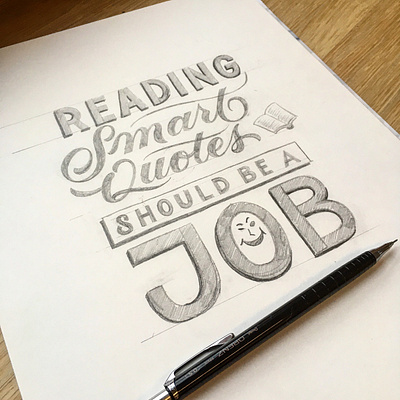 READING
Smart
Quotes
SHOULD BE A
JOB
ORENZ